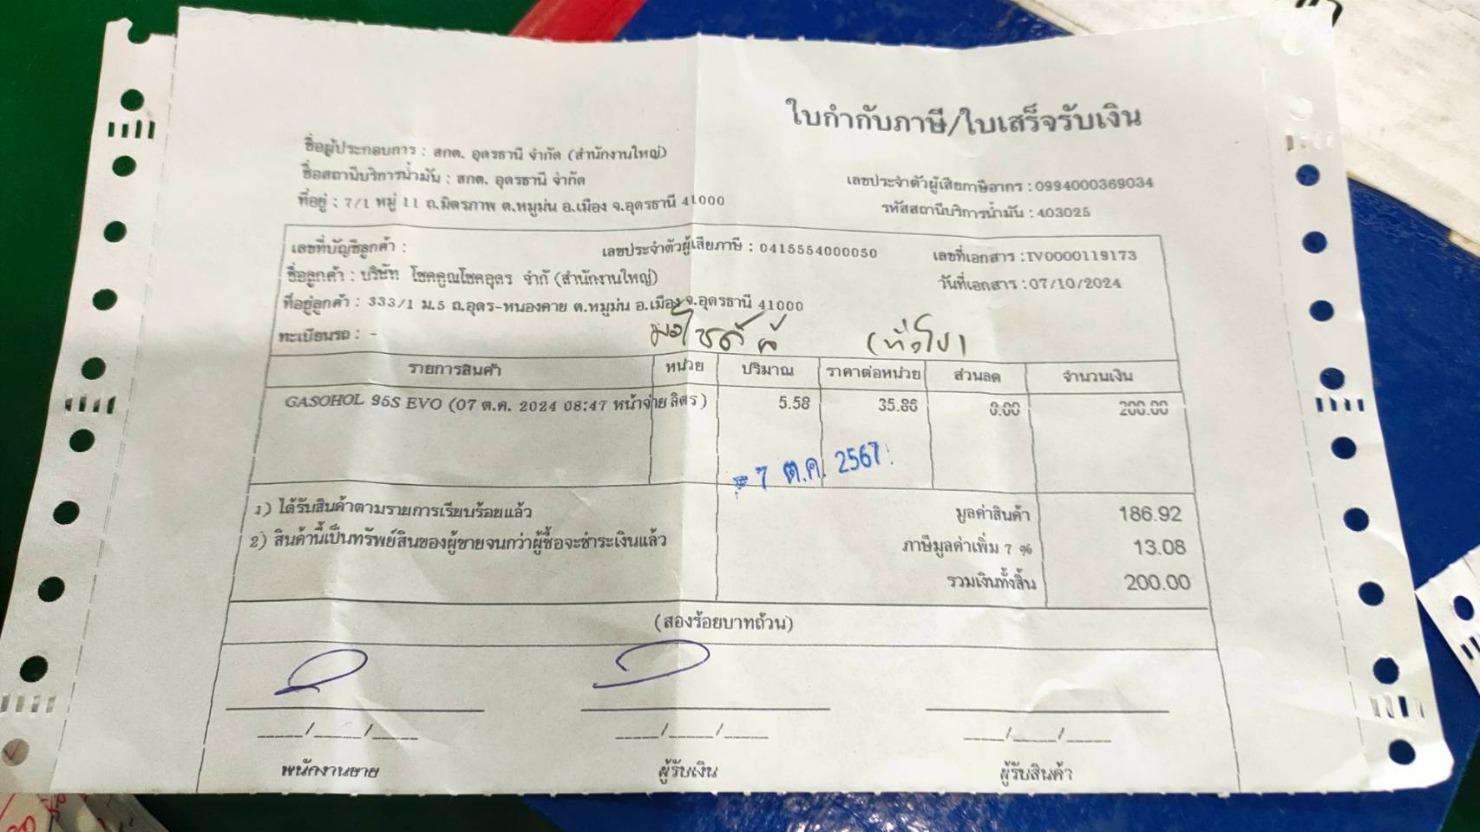 ใบกำกับภาษี/ใบเสร็จรับเงิน
ชื่อผู้ประกอบการ : สกต. อุดรธานี จำกัด (สำนักงานใหญ่)
ชื่อสถานีบริการน้ำมัน : สกต. อุดรธานี จำกัด
เลขประจำตัวผู้เสียภาษีอากร : 0994000369034
ที่อยู่ : 7/1 หมู่ 11 ถ.มิตรภาพ ต.หมูม่น อ.เมือง จ.อุดรธานี 41000
รหัสสถานีบริการน้ำมัน : 403025
เลขที่บัญชีลูกค้า : เลขประจำตัวผู้เสียภาษี : 0415554000050 เลขที่เอกสาร : IV0000119173
ชื่อลูกค้า : บริษัท โชคคูณโชคอุดร จำกั (สำนักงานใหญ่) วันที่เอกสาร : 07/10/2024
ที่อยู่ลูกค้า : 333/1 ม.5 ถ.อุดร-หนองคาย ต.หมูม่น อ.เมือง จ.อุดรธานี 41000
ทะเบียนรถ : -
รายการสินค้า หน่วย ปริมาณ ราคาต่อหน่วย ส่วนลด จำนวนเงิน
GASOHOL 95S EVO (07 ต.ค. 2024 08:47 หน้าจ่าย ลิตร) 5.58 35.86 0.00 200.00
7 ต.ค. 2567
1) ได้รับสินค้าตามรายการเรียบร้อยแล้ว มูลค่าสินค้า 186.92
2) สินค้านี้เป็นทรัพย์สินของผู้ขายจนกว่าผู้ซื้อจะชำระเงินแล้ว ภาษีมูลค่าเพิ่ม 7 % 13.08
รวมเงินทั้งสิ้น 200.00
(สองร้อยบาทถ้วน)
____/____/____ ____/____/____ ____/____/____
พนักงานขาย ผู้รับเงิน ผู้รับสินค้า